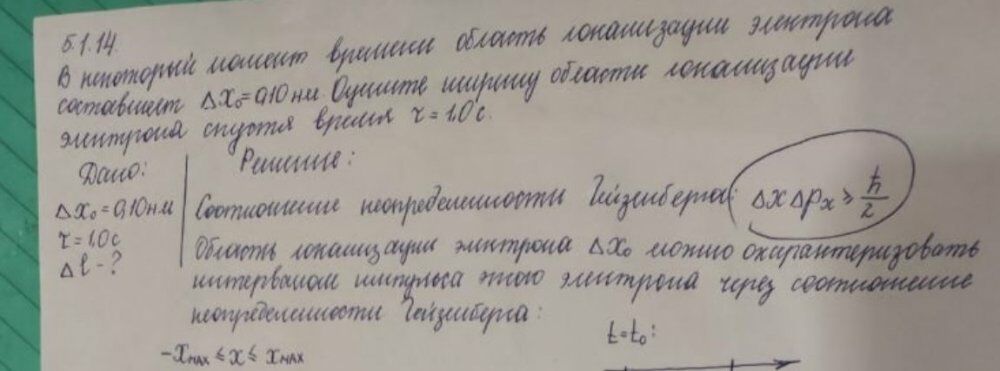 5.1.14.
В некоторый момент времени область локализации электрона
составляет Δx₀ = 0,10 нм. Оцените ширину области локализации
электрона спустя время τ = 1,0 с.
Дано:
Решение:
Δx₀ = 0,10 нм
τ = 1,0 с
Δl - ?
Соотношение неопределенности Гейзенберга: Δx Δpₓ ≥ ħ/2
Область локализации электрона Δx₀ можно охарактеризовать
интервалом импульса этого электрона через соотношение
неопределенности Гейзенберга:
t = t₀:
-x_MAX ≤ x ≤ x_MAX